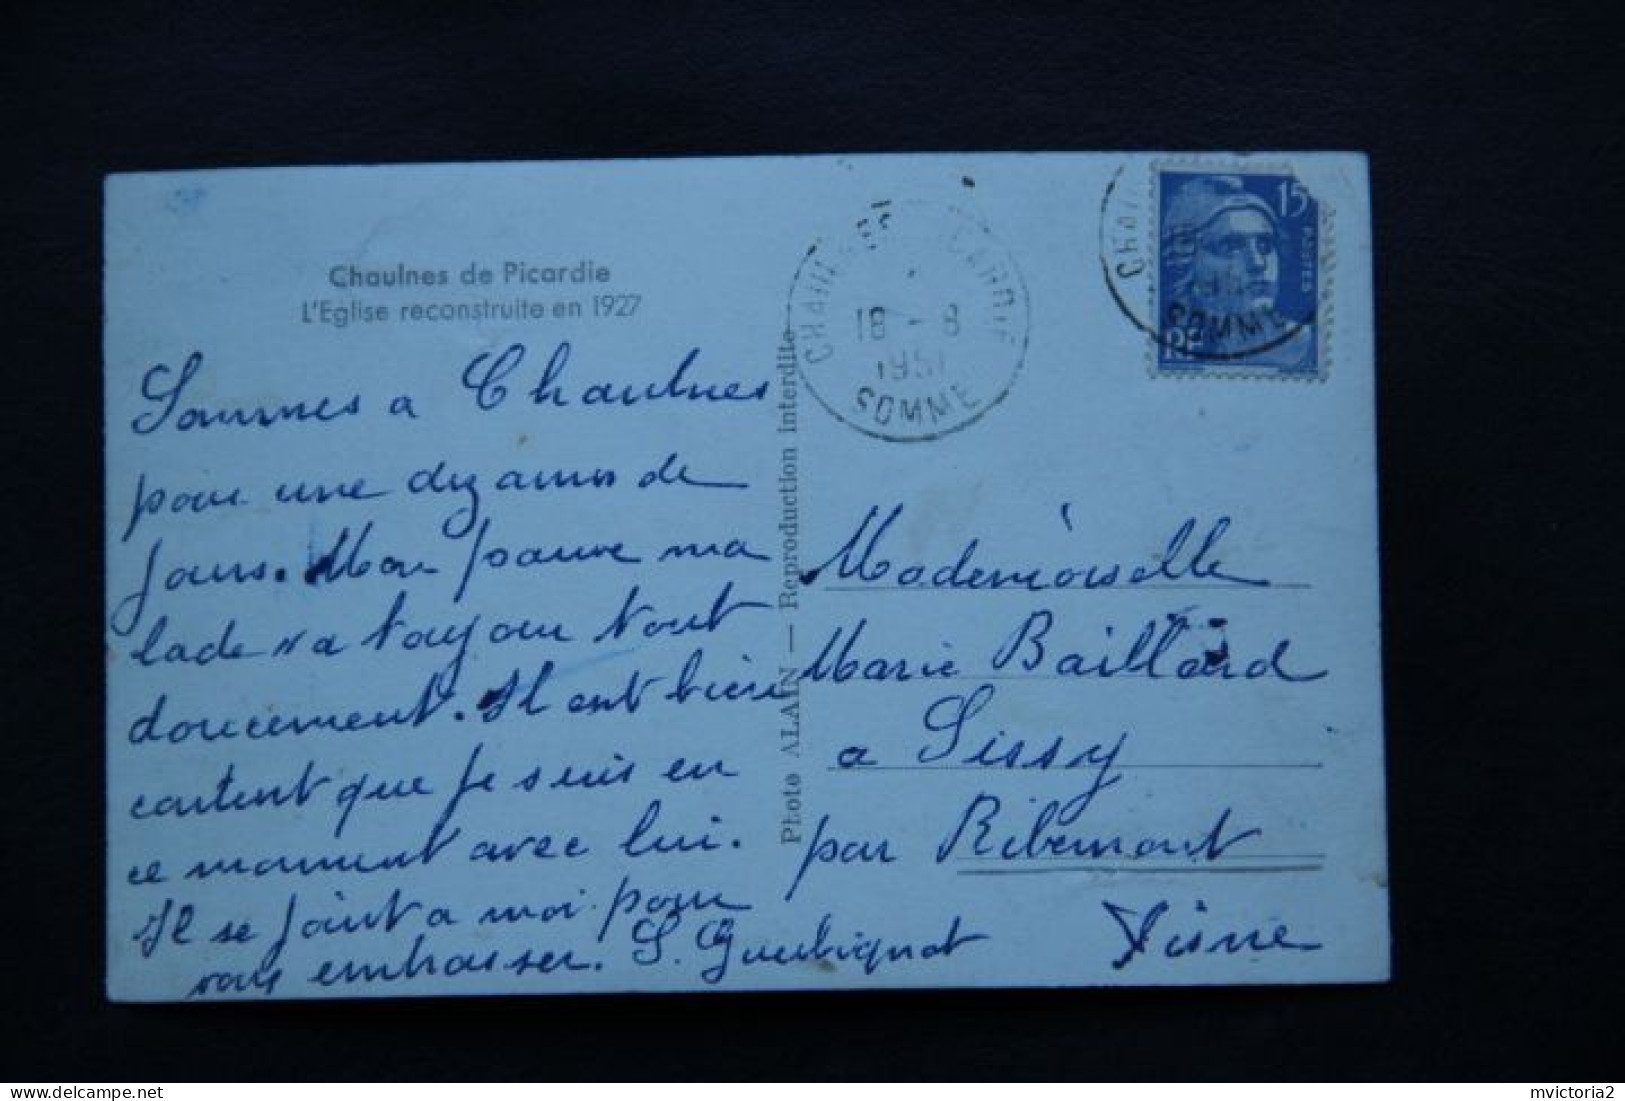 Chaulnes de Picardie
L'Eglise reconstruite en 1927
Sommes a Chaulnes
pour une dizaines de
jours. Mon pauvre ma
lade va toujour tout
doucement. Il est bien
content que je suis en
ce moment avec lui.
Il se joint a moi pour
vous embrasser. S. Guerbignot
Photo ALAIN — Reproduction interdite
CHAULNES GARE
18 - 8
1951
SOMME
15
POSTES
RF
SOMME
Mademoiselle
Marie Baillard
a Sissy
par Ribemont
Aisne
delcampe.net
mvictoria2